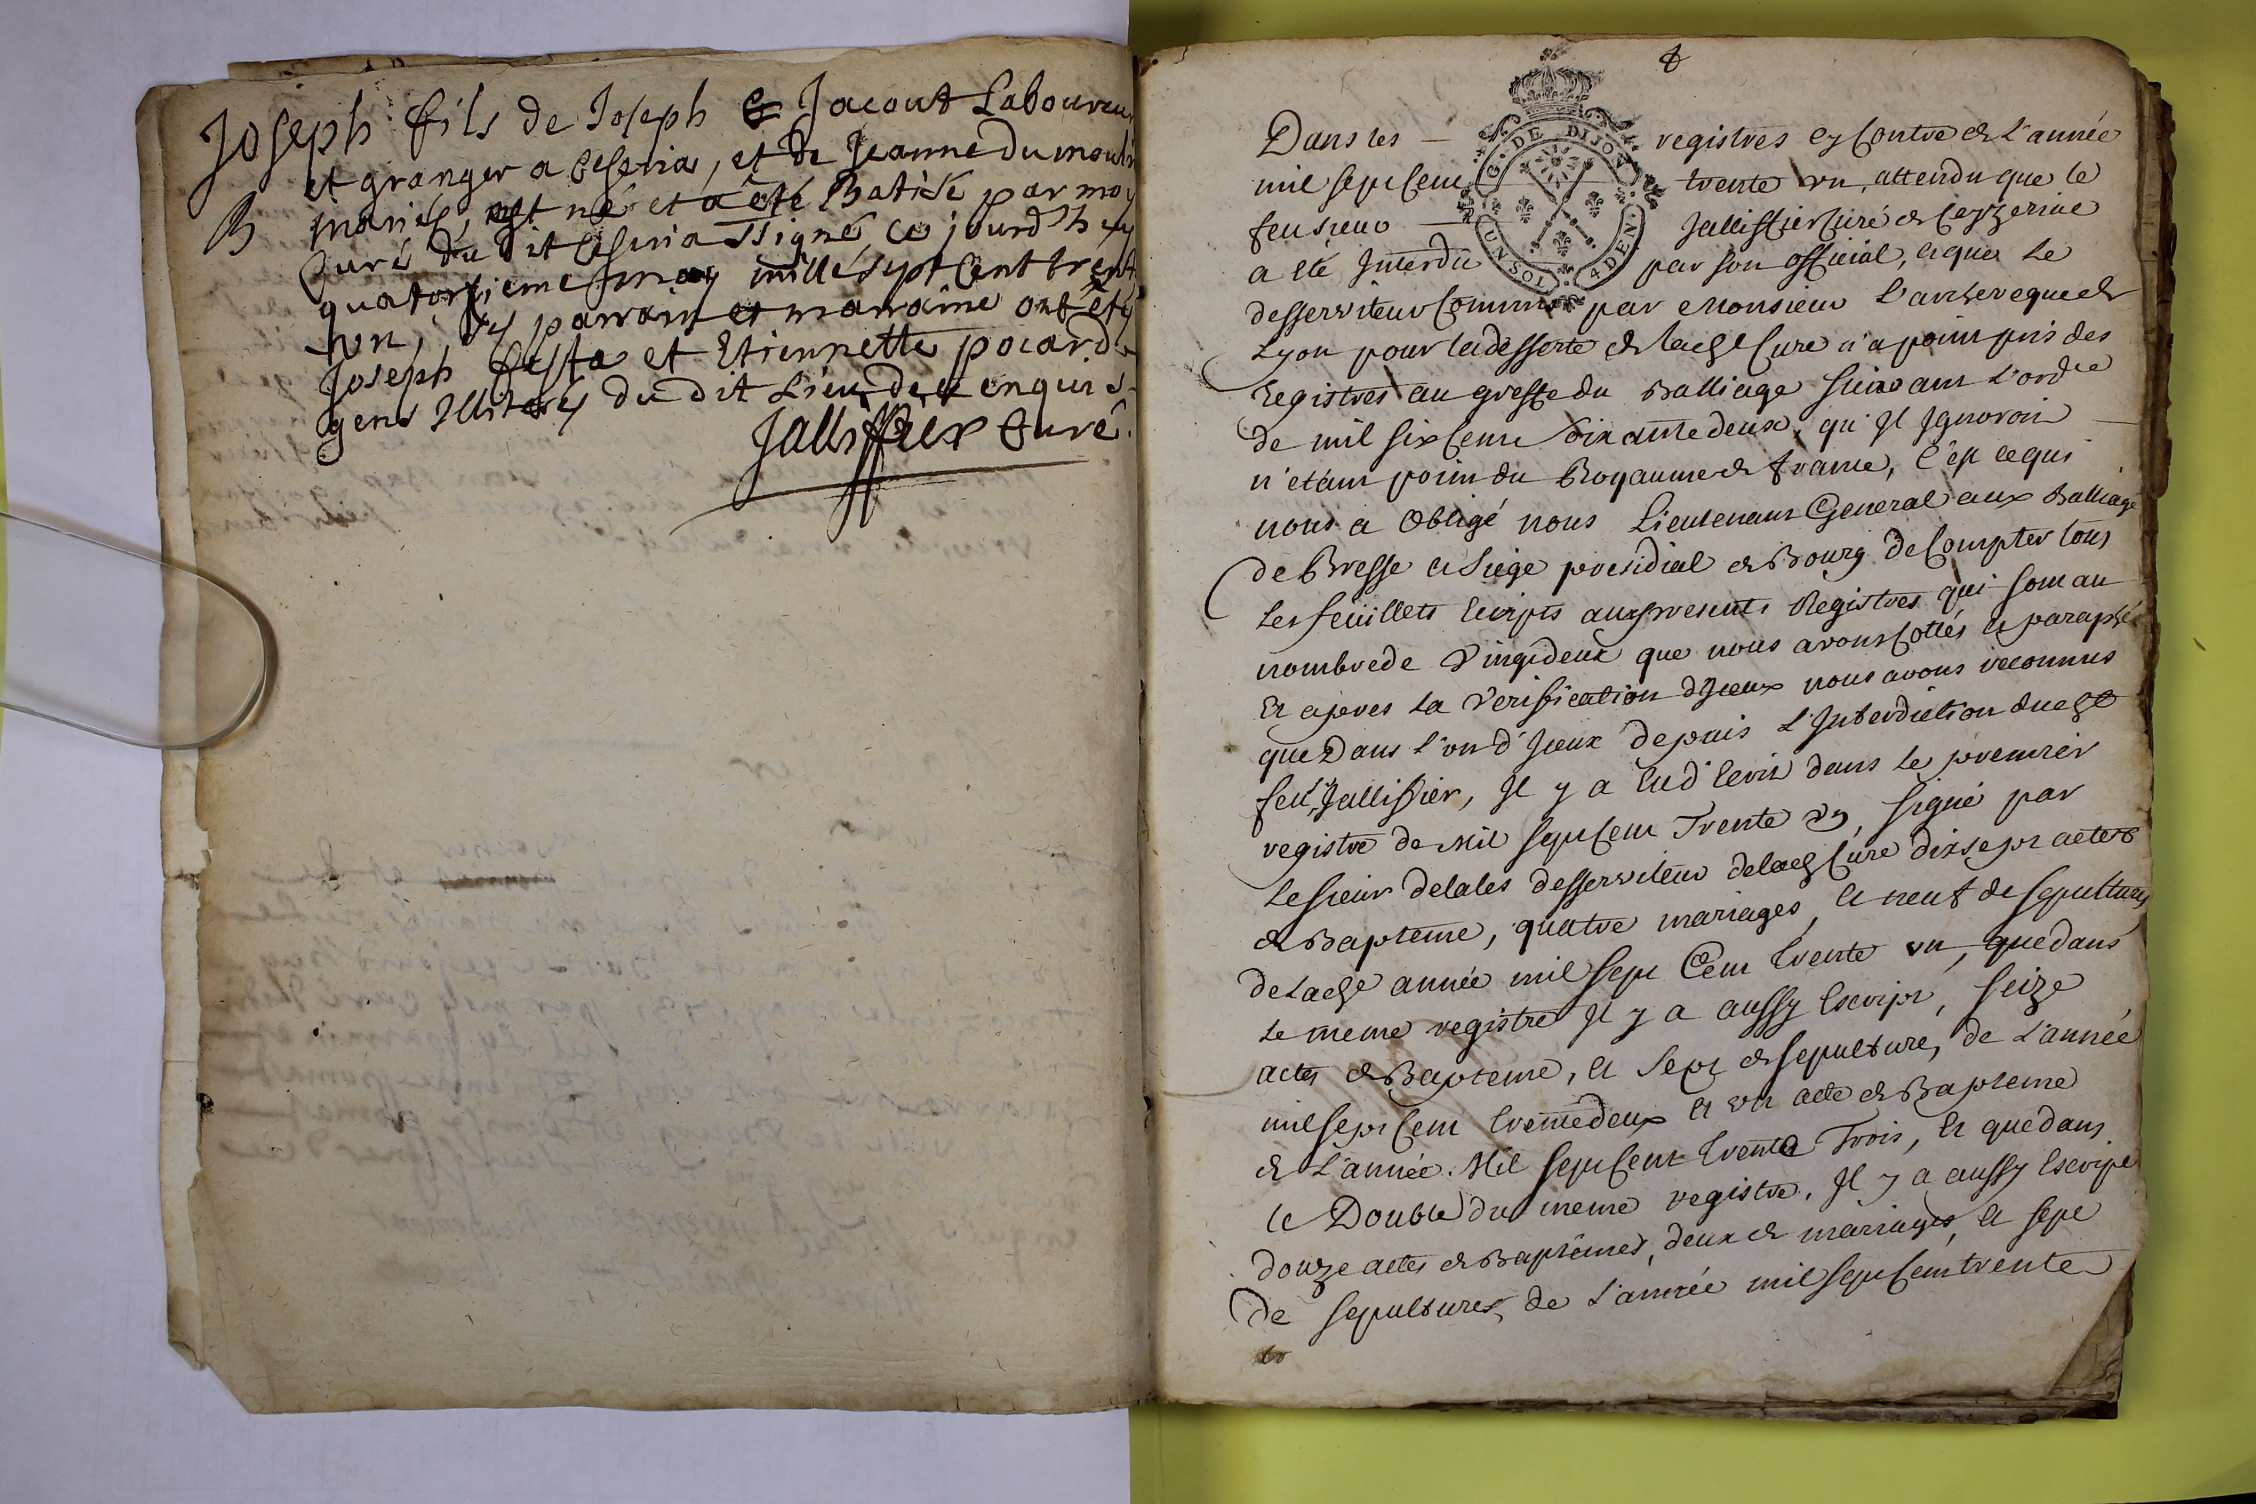 Joseph fils de Joseph & Jacout Laboureur
et granger a Ceseria, et de Jeanne du moulin
B
mariés, est né et a été Batisé par moy
Curé du dit Ceseria ssigné ce jourd'huy
quatorzieme may mille sept Cent trent
un, Les parrain et marraine ont été
Joseph Cesta et Etiennette pocard
gens Illiterés du dit Lieu de ce enquis
Jallissier Curé.
8
Dans les registres cy Contre de L'année
mil sept Cent trente un, attendu que le
feu sieur Jallissier Curé de Ceyzeria
a été Interdit par son official, et que Le
desserviteur Commis par Monsieur L'archeveque de
Lyon pour la desserte de lade Cure n'a point pris des
Registres au greffe du Balliage suivant L'ordre
de mil six Cent soixante deux, qu'il Ignoroit
n'étant point du Royaume de france, C'est ce qui
nous a Obligé nous Lieutenant General aux Balliage
de Bresse et siege presidial de Bourg de Compter tous
Les feüillets Ecripts aux presents Registres qui sont au
nombre de Vingt deux que nous avons Cottés et paraphés
Et apres la Verification d'Iceux nous avons reconnus
que Dans l'un d'Iceux depuis L'Interdiction dud
feu Sr Jallissier, Il y a Eu d'Ecrit dans Le premier
registre de Mil sept Cent Trente un, signé par
Le sieur delales desserviteur de lade Cure dix sept actes
de Bapteme, quatre mariages, et neuf de sepultures
de lade année mil sept Cent trente un, que dans
Le meme registre Il y a aussy Escript, seize
actes de Bapteme, et sept de sepulture, de L'année
mil sept Cent trente deux et un acte de Bapteme
de L'année Mil sept Cent trente Trois, et que dans
le Double du meme registre, Il y a aussy Escript
douze actes de Baptêmes, deux de mariages, et sept
de sepultures, de L'année mil sept Cent trente
G. DE DIJON
UN SOL 4 DEN.